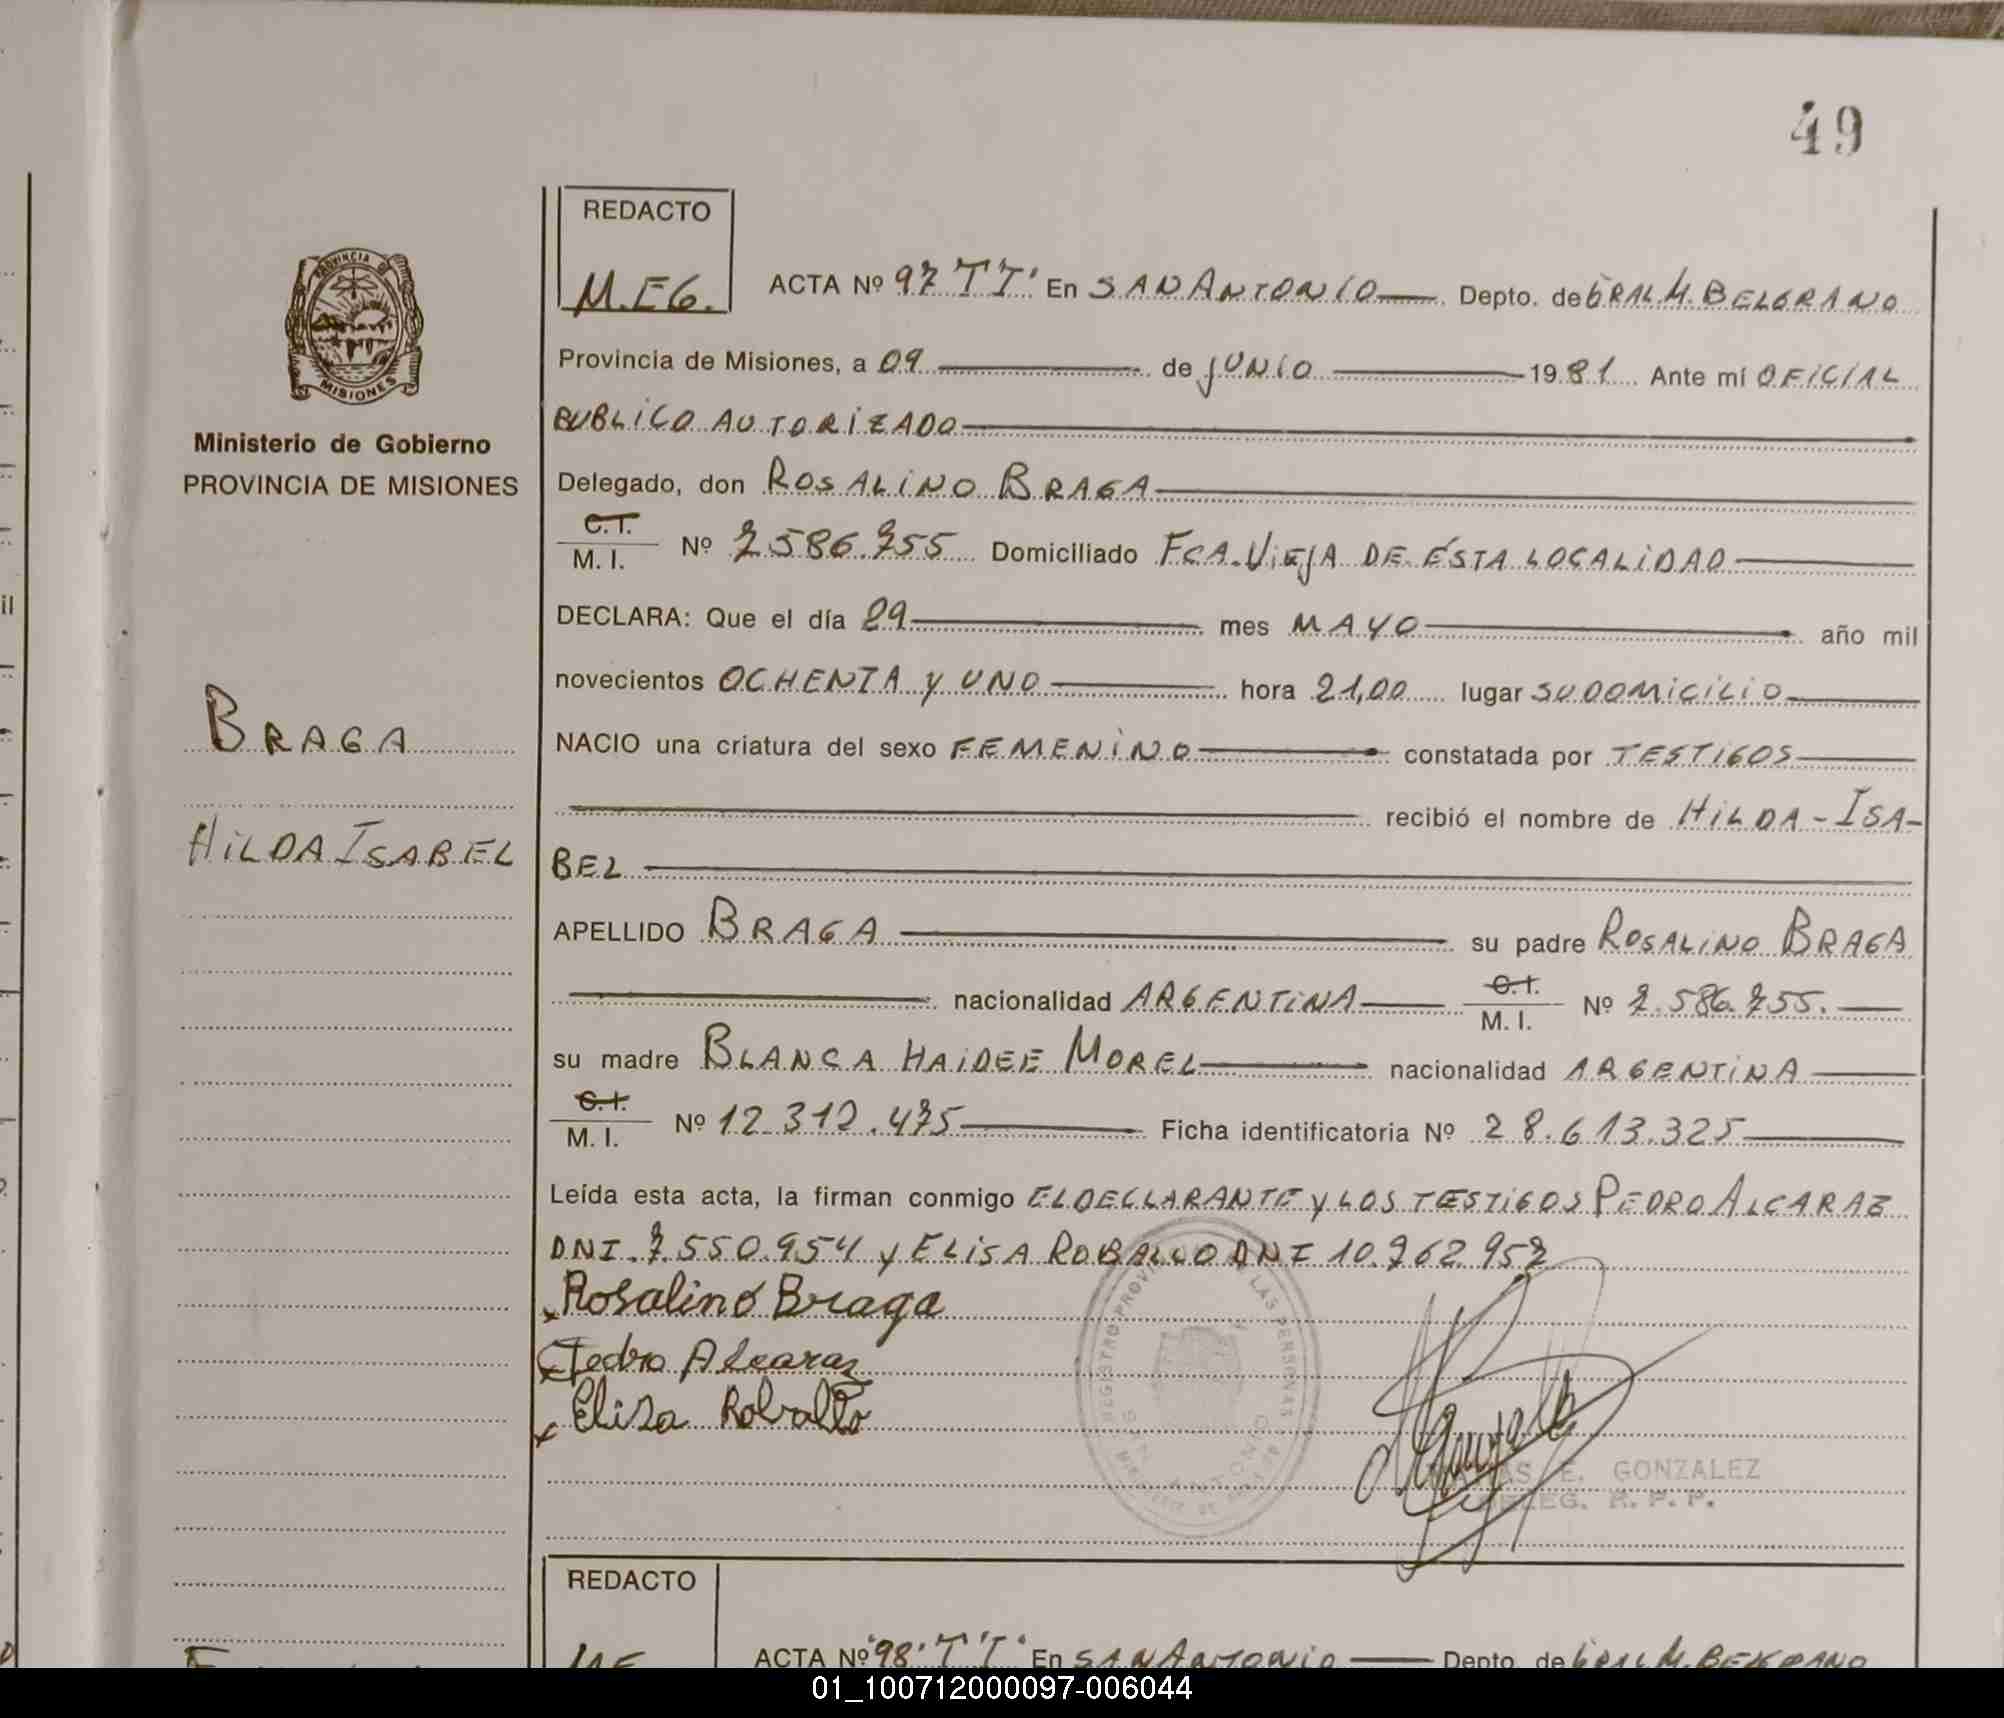 49
REDACTO
M.EG.
ACTA Nº 97 "TT" En SAN ANTONIO Depto. de GRAL M. BELGRANO
Provincia de Misiones, a 09 de JUNIO 1981 Ante mí OFICIAL
PUBLICO AUTORIZADO
Delegado, don ROSALINO BRAGA
C.I. M. I. Nº 7.586.755 Domiciliado FCA. VIEJA DE ÉSTA LOCALIDAD
DECLARA: Que el día 29 mes MAYO año mil
novecientos OCHENTA y UNO hora 21,00 lugar SU DOMICILIO
NACIO una criatura del sexo FEMENINO constatada por TESTIGOS
recibió el nombre de HILDA-ISA-
BEL
APELLIDO BRAGA su padre ROSALINO BRAGA
nacionalidad ARGENTINA C.I. M. I. Nº 7.586.755.
su madre BLANCA HAIDEE MOREL nacionalidad ARGENTINA
C.I. M. I. Nº 12.312.475 Ficha identificatoria Nº 28.613.325
Leída esta acta, la firman conmigo EL DECLARANTE y LOS TESTIGOS PEDRO ALCARAZ
DNI. 7.550.954 y ELISA ROBALLO DNI 10.762.957
Rosalino Braga
Pedro Alcaraz
Elisa Roballo
REGISTRO PROVINCIAL DE LAS PERSONAS
SAN ANTONIO
E. GONZALEZ
DELEG. R. P. P.
PROVINCIA DE
MISIONES
Ministerio de Gobierno
PROVINCIA DE MISIONES
BRAGA
HILDA ISABEL
REDACTO
ACTA Nº 98 "TT" En SAN ANTONIO Depto. de GRAL M. BELGRANO
01_100712000097-006044